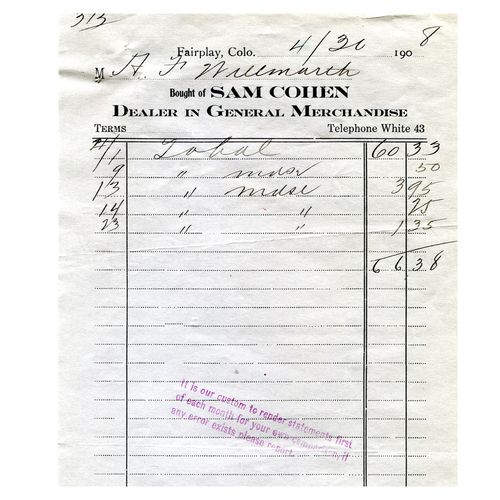 313
Fairplay, Colo. 4/30 1908
M A. F. Willmarth
Bought of SAM COHEN
DEALER IN GENERAL MERCHANDISE
TERMS Telephone White 43
4/1 Tobal 60 33
9 " mdse 50
13 " mdse 3 95
14 " " 25
23 " " 1 35
66 38
It is our custom to render statements first
of each month for your own comparison, if
any error exists please report.